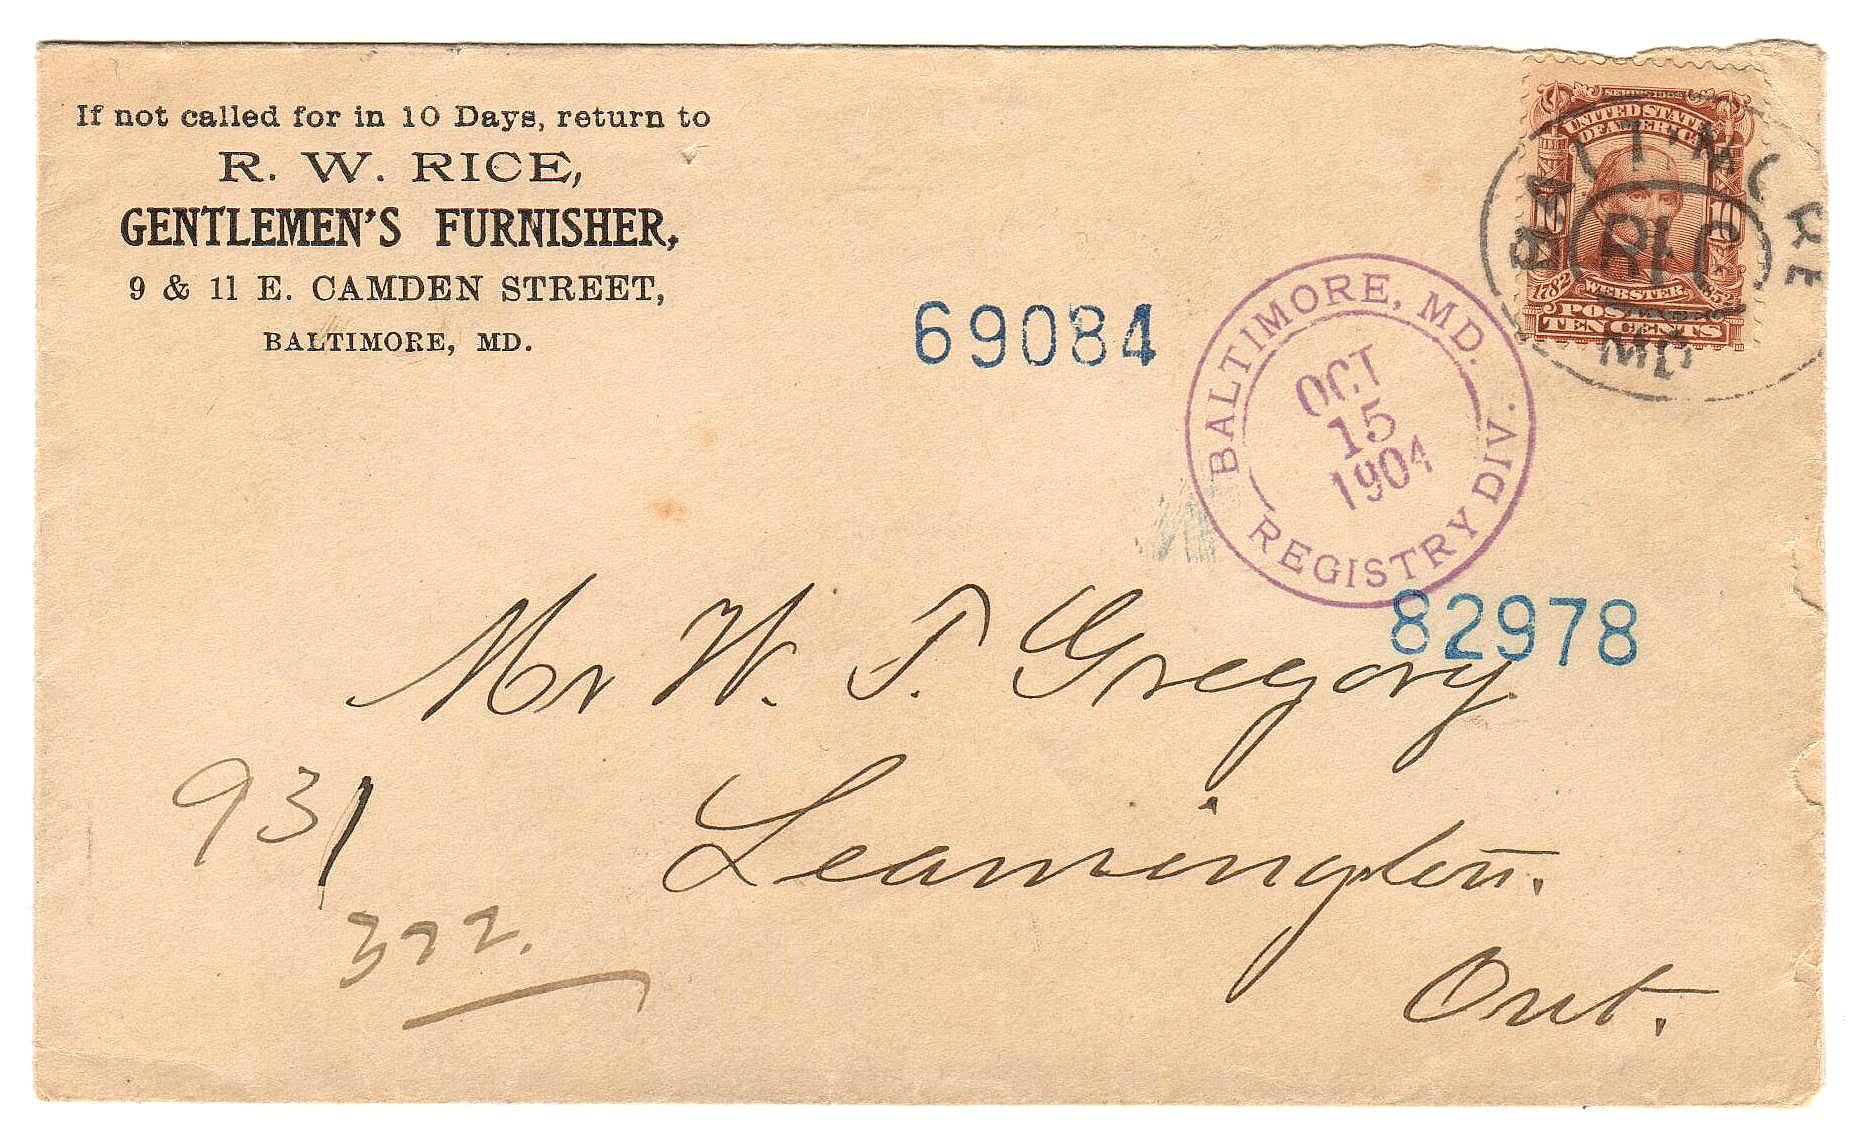 If not called for in 10 Days, return to
R. W. RICE,
GENTLEMEN'S FURNISHER,
9 & 11 E. CAMDEN STREET,
BALTIMORE, MD.
UNITED STATES
OF AMERICA
10 10
1782 WEBSTER 1852
POSTAGE
TEN CENTS
BALTIMORE
REG
MD
69084
BALTIMORE, MD.
OCT
15
1904
REGISTRY DIV.
82978
Mr W. T. Gregory
Leamington.
Ont.
931
322.